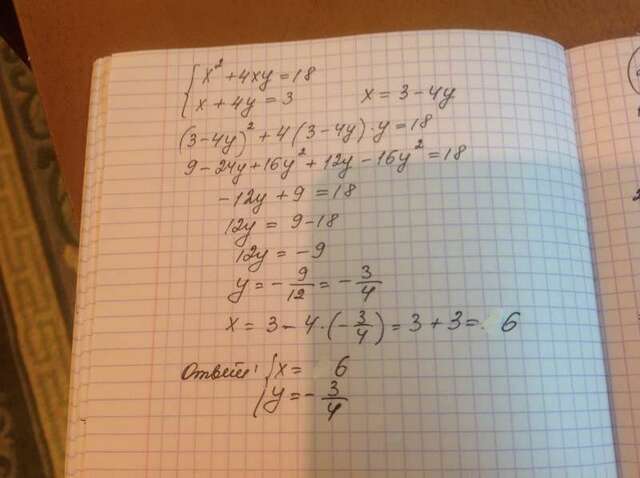 { x² + 4xy = 18
{ x + 4y = 3 x = 3 - 4y
(3-4y)² + 4(3-4y)·y = 18
9 - 24y + 16y² + 12y - 16y² = 18
-12y + 9 = 18
12y = 9 - 18
12y = -9
y = - 9/12 = - 3/4
x = 3 - 4·(-3/4) = 3 + 3 = 6
Ответ: { x = 6
{ y = - 3/4